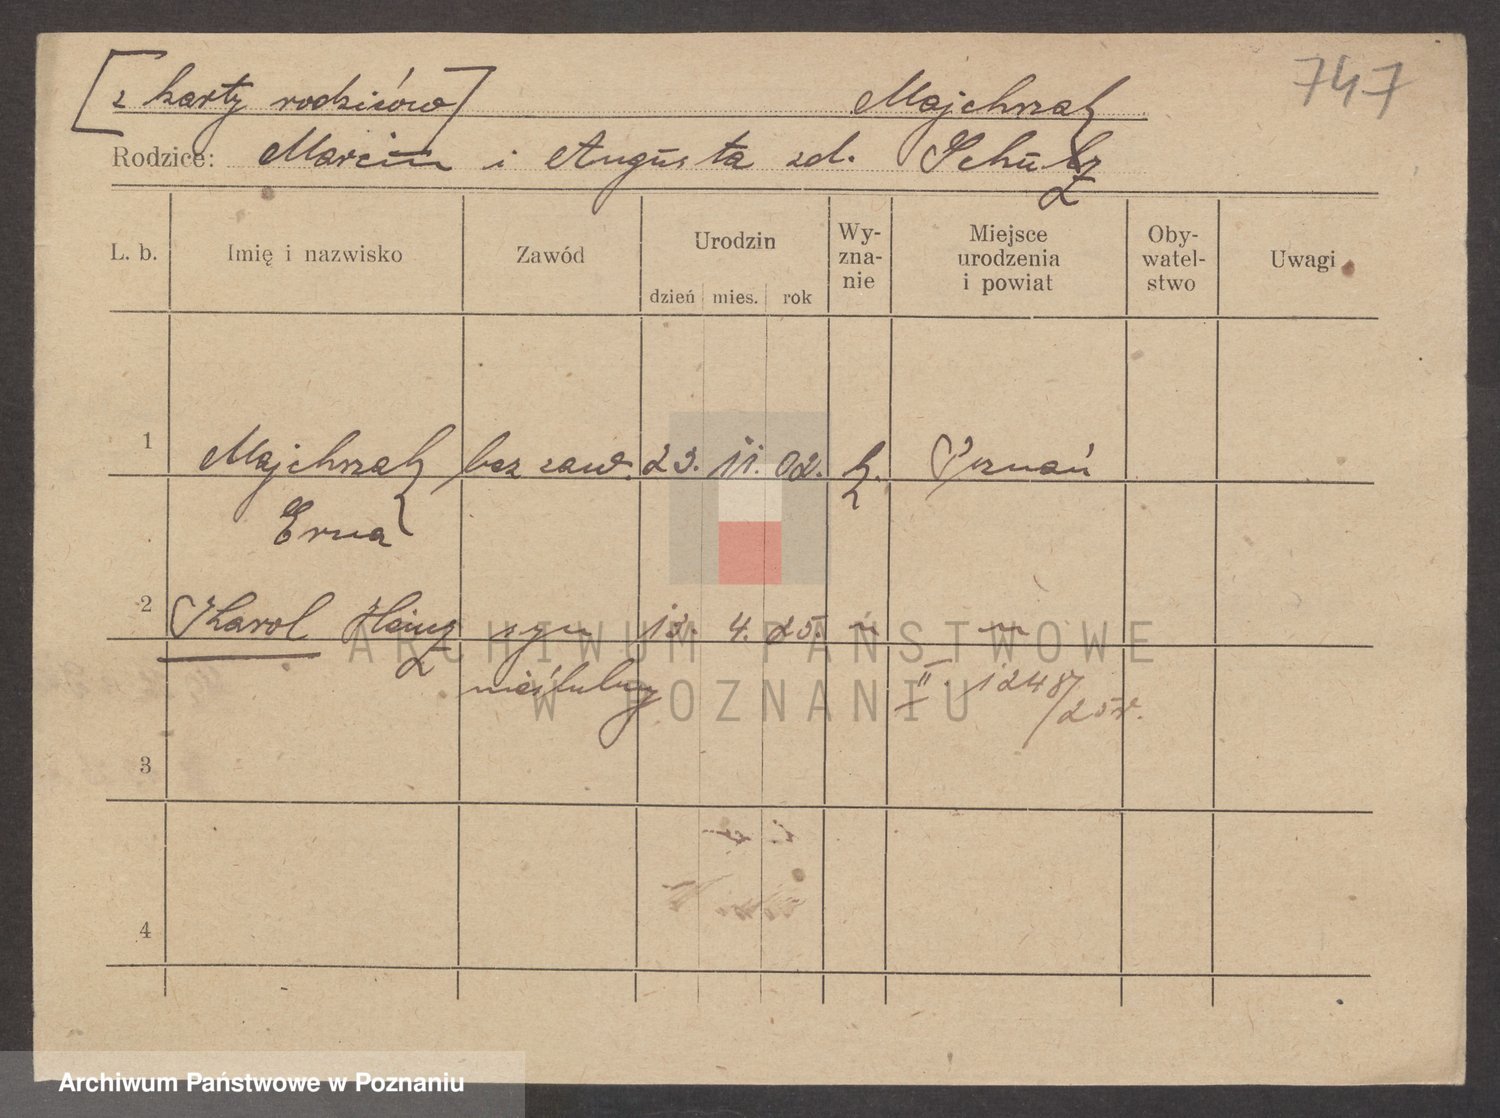 747
[z karty rodziców] Majchrzak
Rodzice: Marcin i Augusta zd. Schulz
L. b. Imię i nazwisko Zawód Urodzin dzień mies. rok Wy-zna-nie Miejsce urodzenia i powiat Oby-watel-stwo Uwagi
1 Majchrzak bez zaw. 23. 11. 02. k. Poznań
Erna
2 Karol Heinz syn 13. 4. 25. " "
nieślubny II. 1248/25r.
3
4
ARCHIWUM PAŃSTWOWE
W POZNANIU
Archiwum Państwowe w Poznaniu